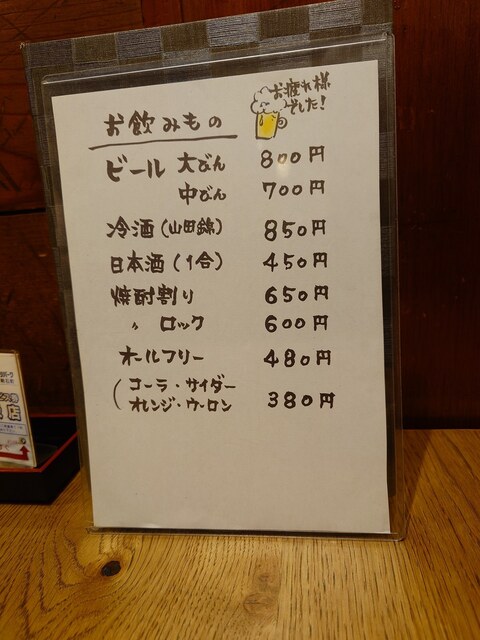 お疲れ様
でした!
お飲みもの
ビール 大びん 800円
中びん 700円
冷酒(山田錦) 850円
日本酒(1合) 450円
焼酎割り 650円
〃 ロック 600円
オールフリー 480円
(コーラ・サイダー
オレンジ・ウーロン 380円
店